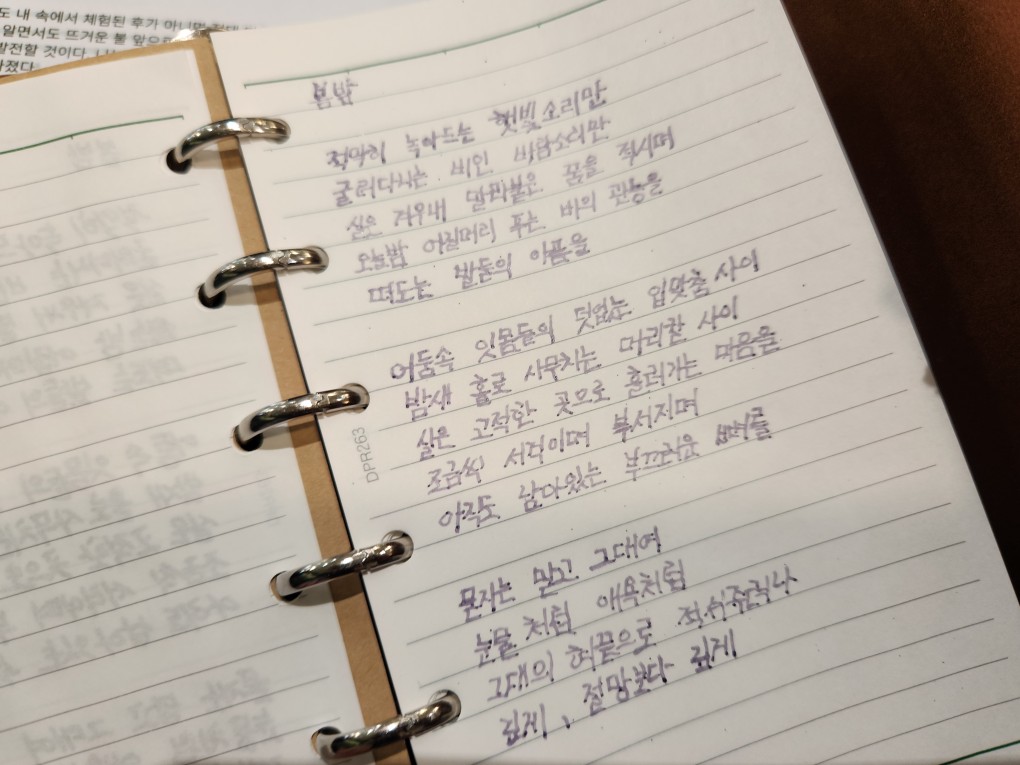 도 내 속에서 체험된 후가 아니면
알면서도 뜨거운 불 앞으로
발전할 것이다.
가졌다.
봄밤
적막히 녹아드는 햇빛소리만
굴러다니는 비인 바람소리만
싫은 겨우내 말라붙은 꿈을 적시며
오늘밤 어질머리 푸는 비의 관능을
떠도는 발들의 아픔을
어둠속 잇몸들의 덧없는 입맞춤 사이
밤새 홀로 사무치는 머리칼 사이
싫은 고적한 곳으로 흘러가는 마음을
조금씩 서걱이며 부서지며
아직도 남아있는 부끄러운 뼈를
묻지는 말고 그대여
눈물처럼 애욕처럼
그대의 혀끝으로 적셔주려나
깊게, 절망보다 깊게
DPR263